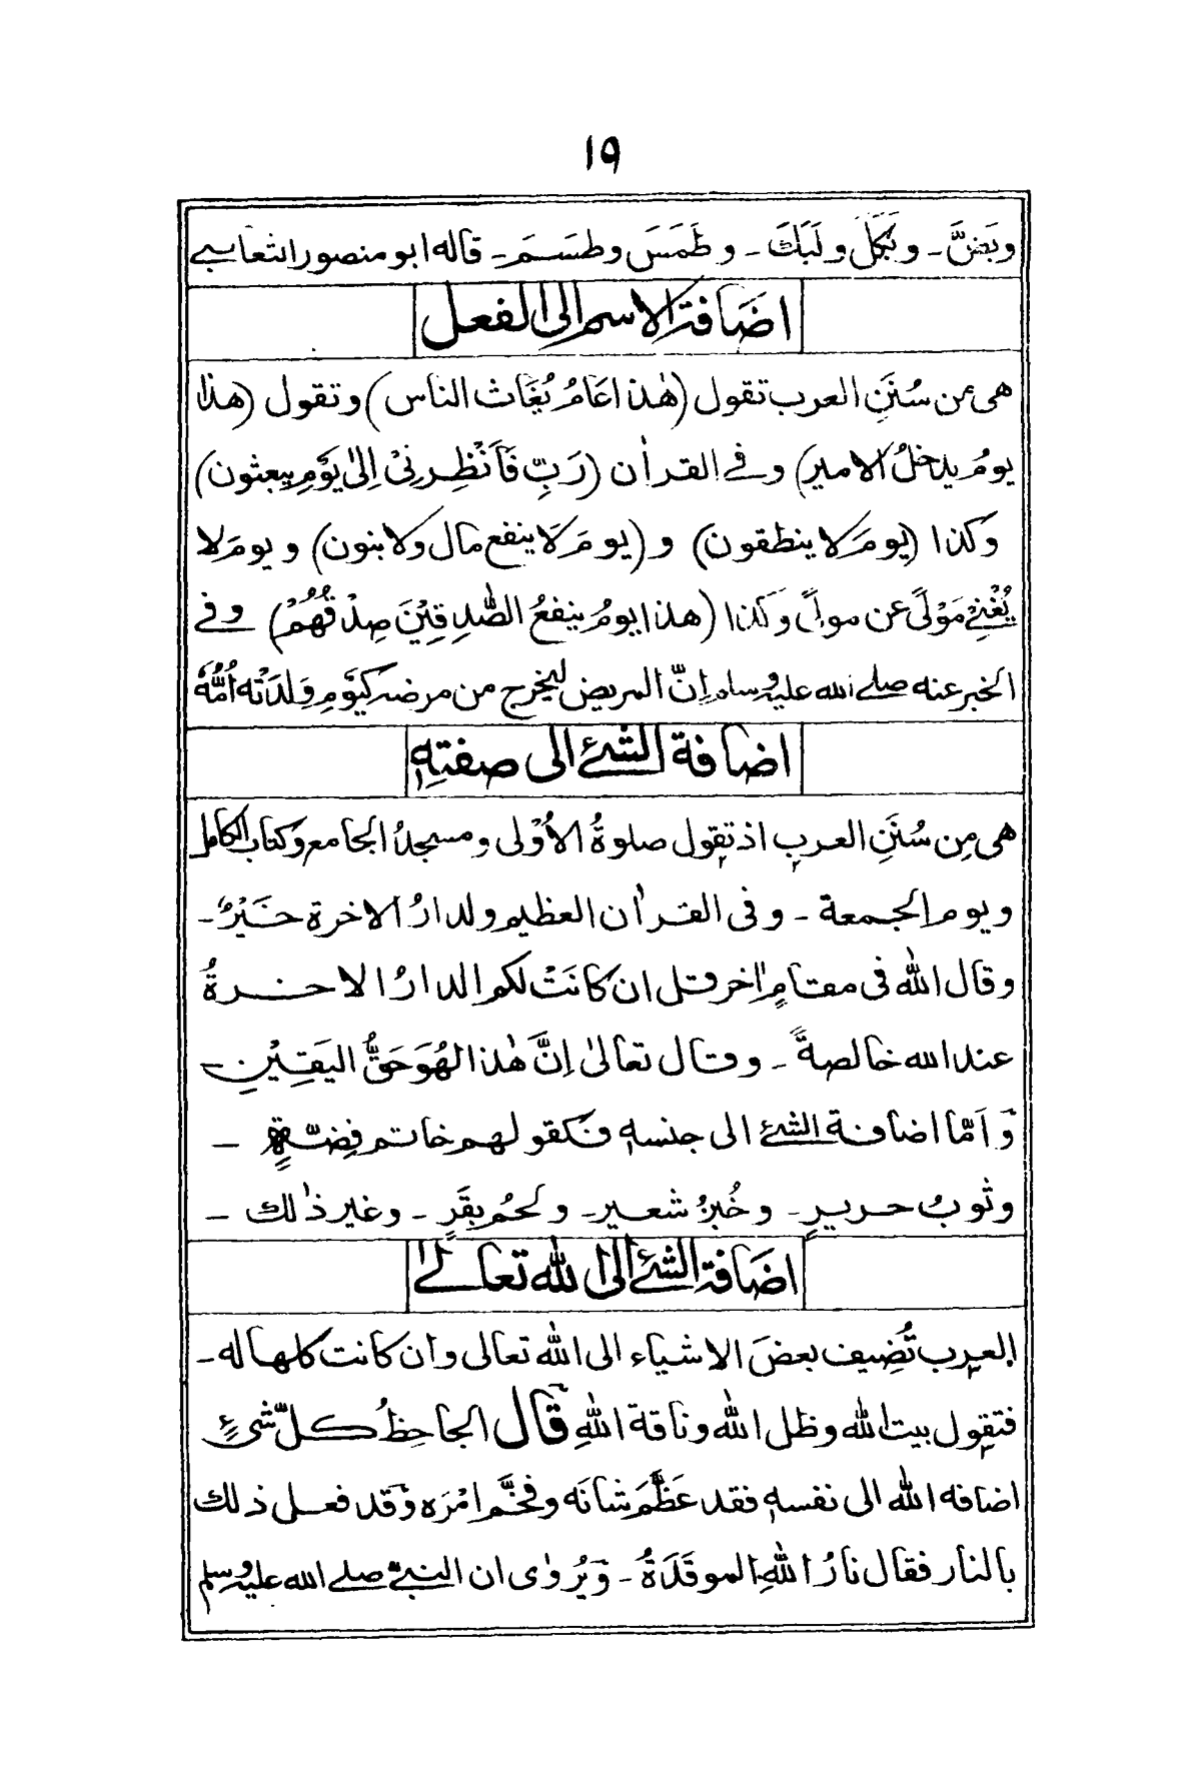 ١٩
وبَضَّ ـ وبَكَلَ ولَبَكَ ـ وطَمَسَ وطسَمَ ـ قاله ابو منصور الثعالبي
اضَافة الاسم الى الفعل
هى من سُنَنِ العرب تقول (هٰذا عَامُ يُغَاث الناس) وتقول (هذا
يومُ يدخلُ الامير) وفے القراٰن (رَبِّ فَاَنْظِرنِیْ اِلىٰ يَوْمِ يبعثون)
وَكذا (يومَ لا ينطقون) و (يومَ لَا ينفع مال ولا بنون) و يومَ لا
يُغْنِیْ مَوْلًى عن مولًى وَكَذا (هذا يومُ ينفعُ الصّٰدِقِيْنَ صِدْقُهُمْ) وفے
الخبر عنه صلے الله عليه وسلم اِنّ المريض ليَخرج من مرضه كيَوْمِ وَلَدَتْه اُمُّهُ
اضافة الشئ الى صفتهٖ
هى مِن سُنَنِ العربِ اذ تقول صلوةُ الاُوْلى ومسجدُ الجامع وكتاب الكامل
ويوم الجمعة ـ وفى القراٰن العظيم ولدارُ الاخرة خَيْرٌ ـ
وقال الله فى مقامٍ اٰخر قل ان كانَتْ لكم الدارُ الاخرةُ
عند الله خالصةً ـ وقال تعالىٰ اِنَّ هٰذا لهُوَ حَقُّ اليَقِيْنِ
وَاَمّا اضافة الشئ الى جنسهٖ فكقولهم خاتم فِضّةٍ ـ
وثوبُ حريرٍ ـ وخُبزُ شعيرٍ ـ ولحمُ بقَرٍ ـ وغير ذٰلك ـ
اضَافة الشئ الى الله تعالےٰ
العرب تُضِيف بعضَ الاشياء الى الله تعالى وان كانت كلها له ـ
فتقول بيت الله وظل الله وناقة اللهِ قَال الجاحِظُ كلّ شىءٍ
اضافه الله الى نفسهٖ فقد عَظَّمَ شانَه وفخَّم امْرَه وَقد فعل ذلك
بالنار فقال نارُ اللهِ الموقَدَةُ ـ وَيُروٰى ان النبىَّ صلے الله عليه وسلم